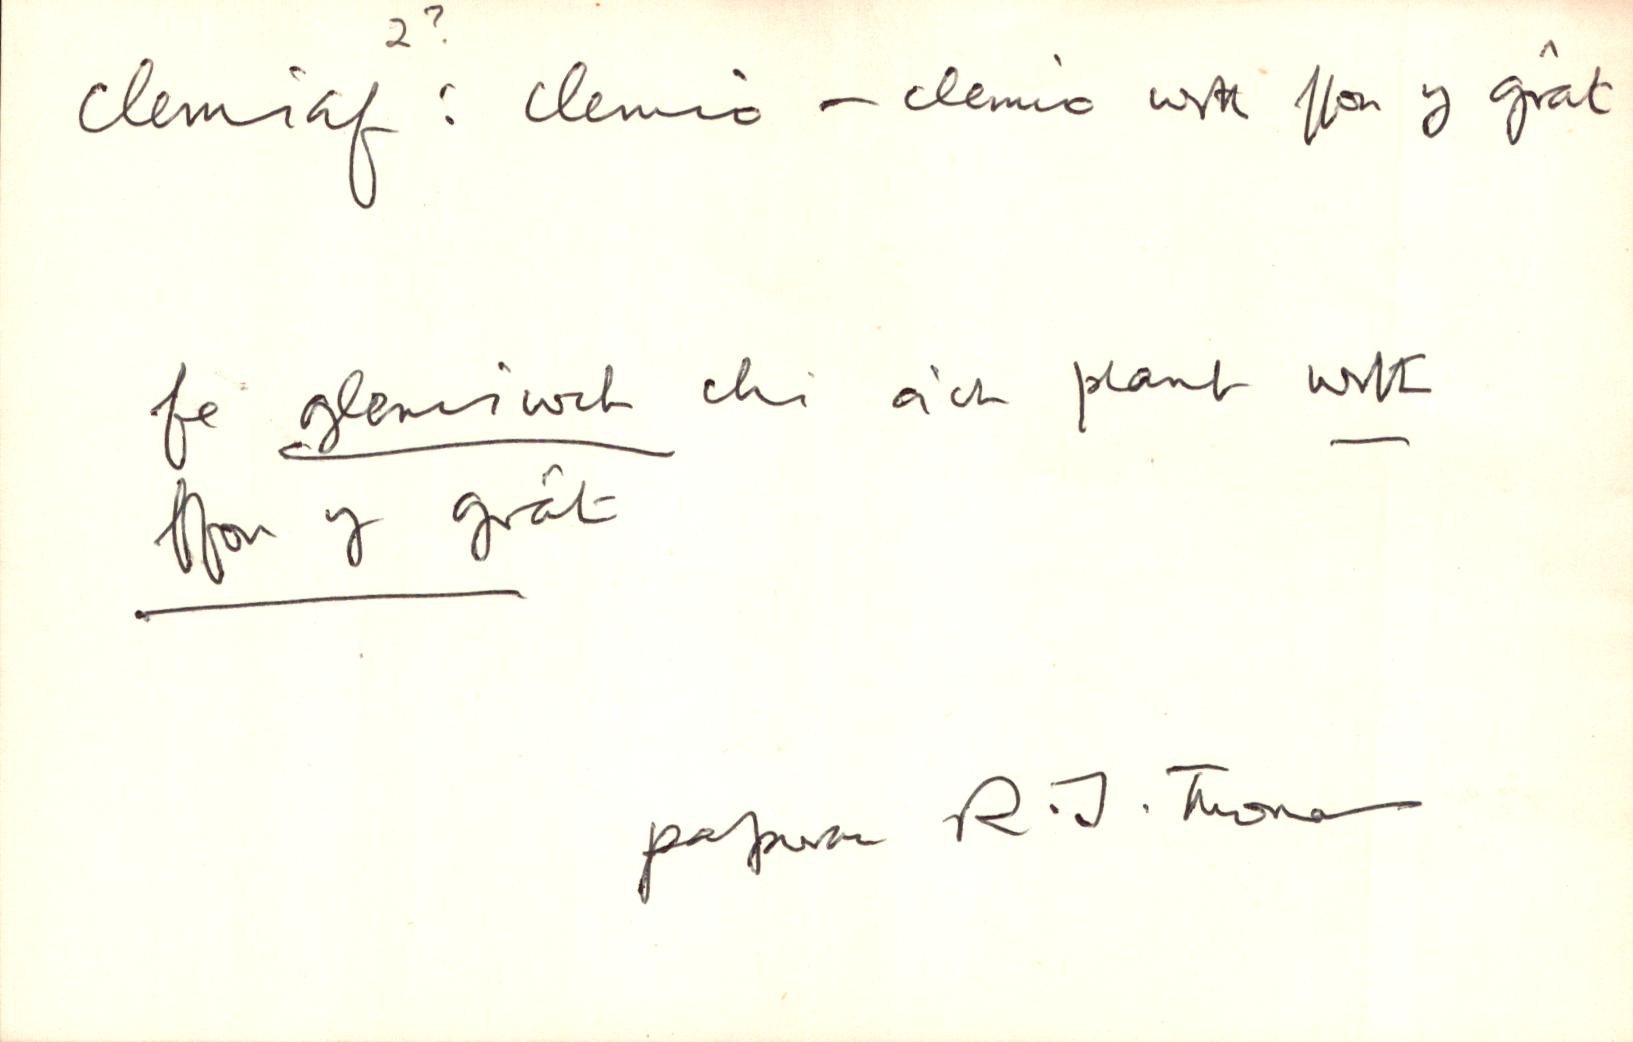 2?
clemiaf : clemio – clemio wrth ffon y grât
fe glemiwch chi a'ch plant wrth
ffon y grât
papurau R. J. Thomas